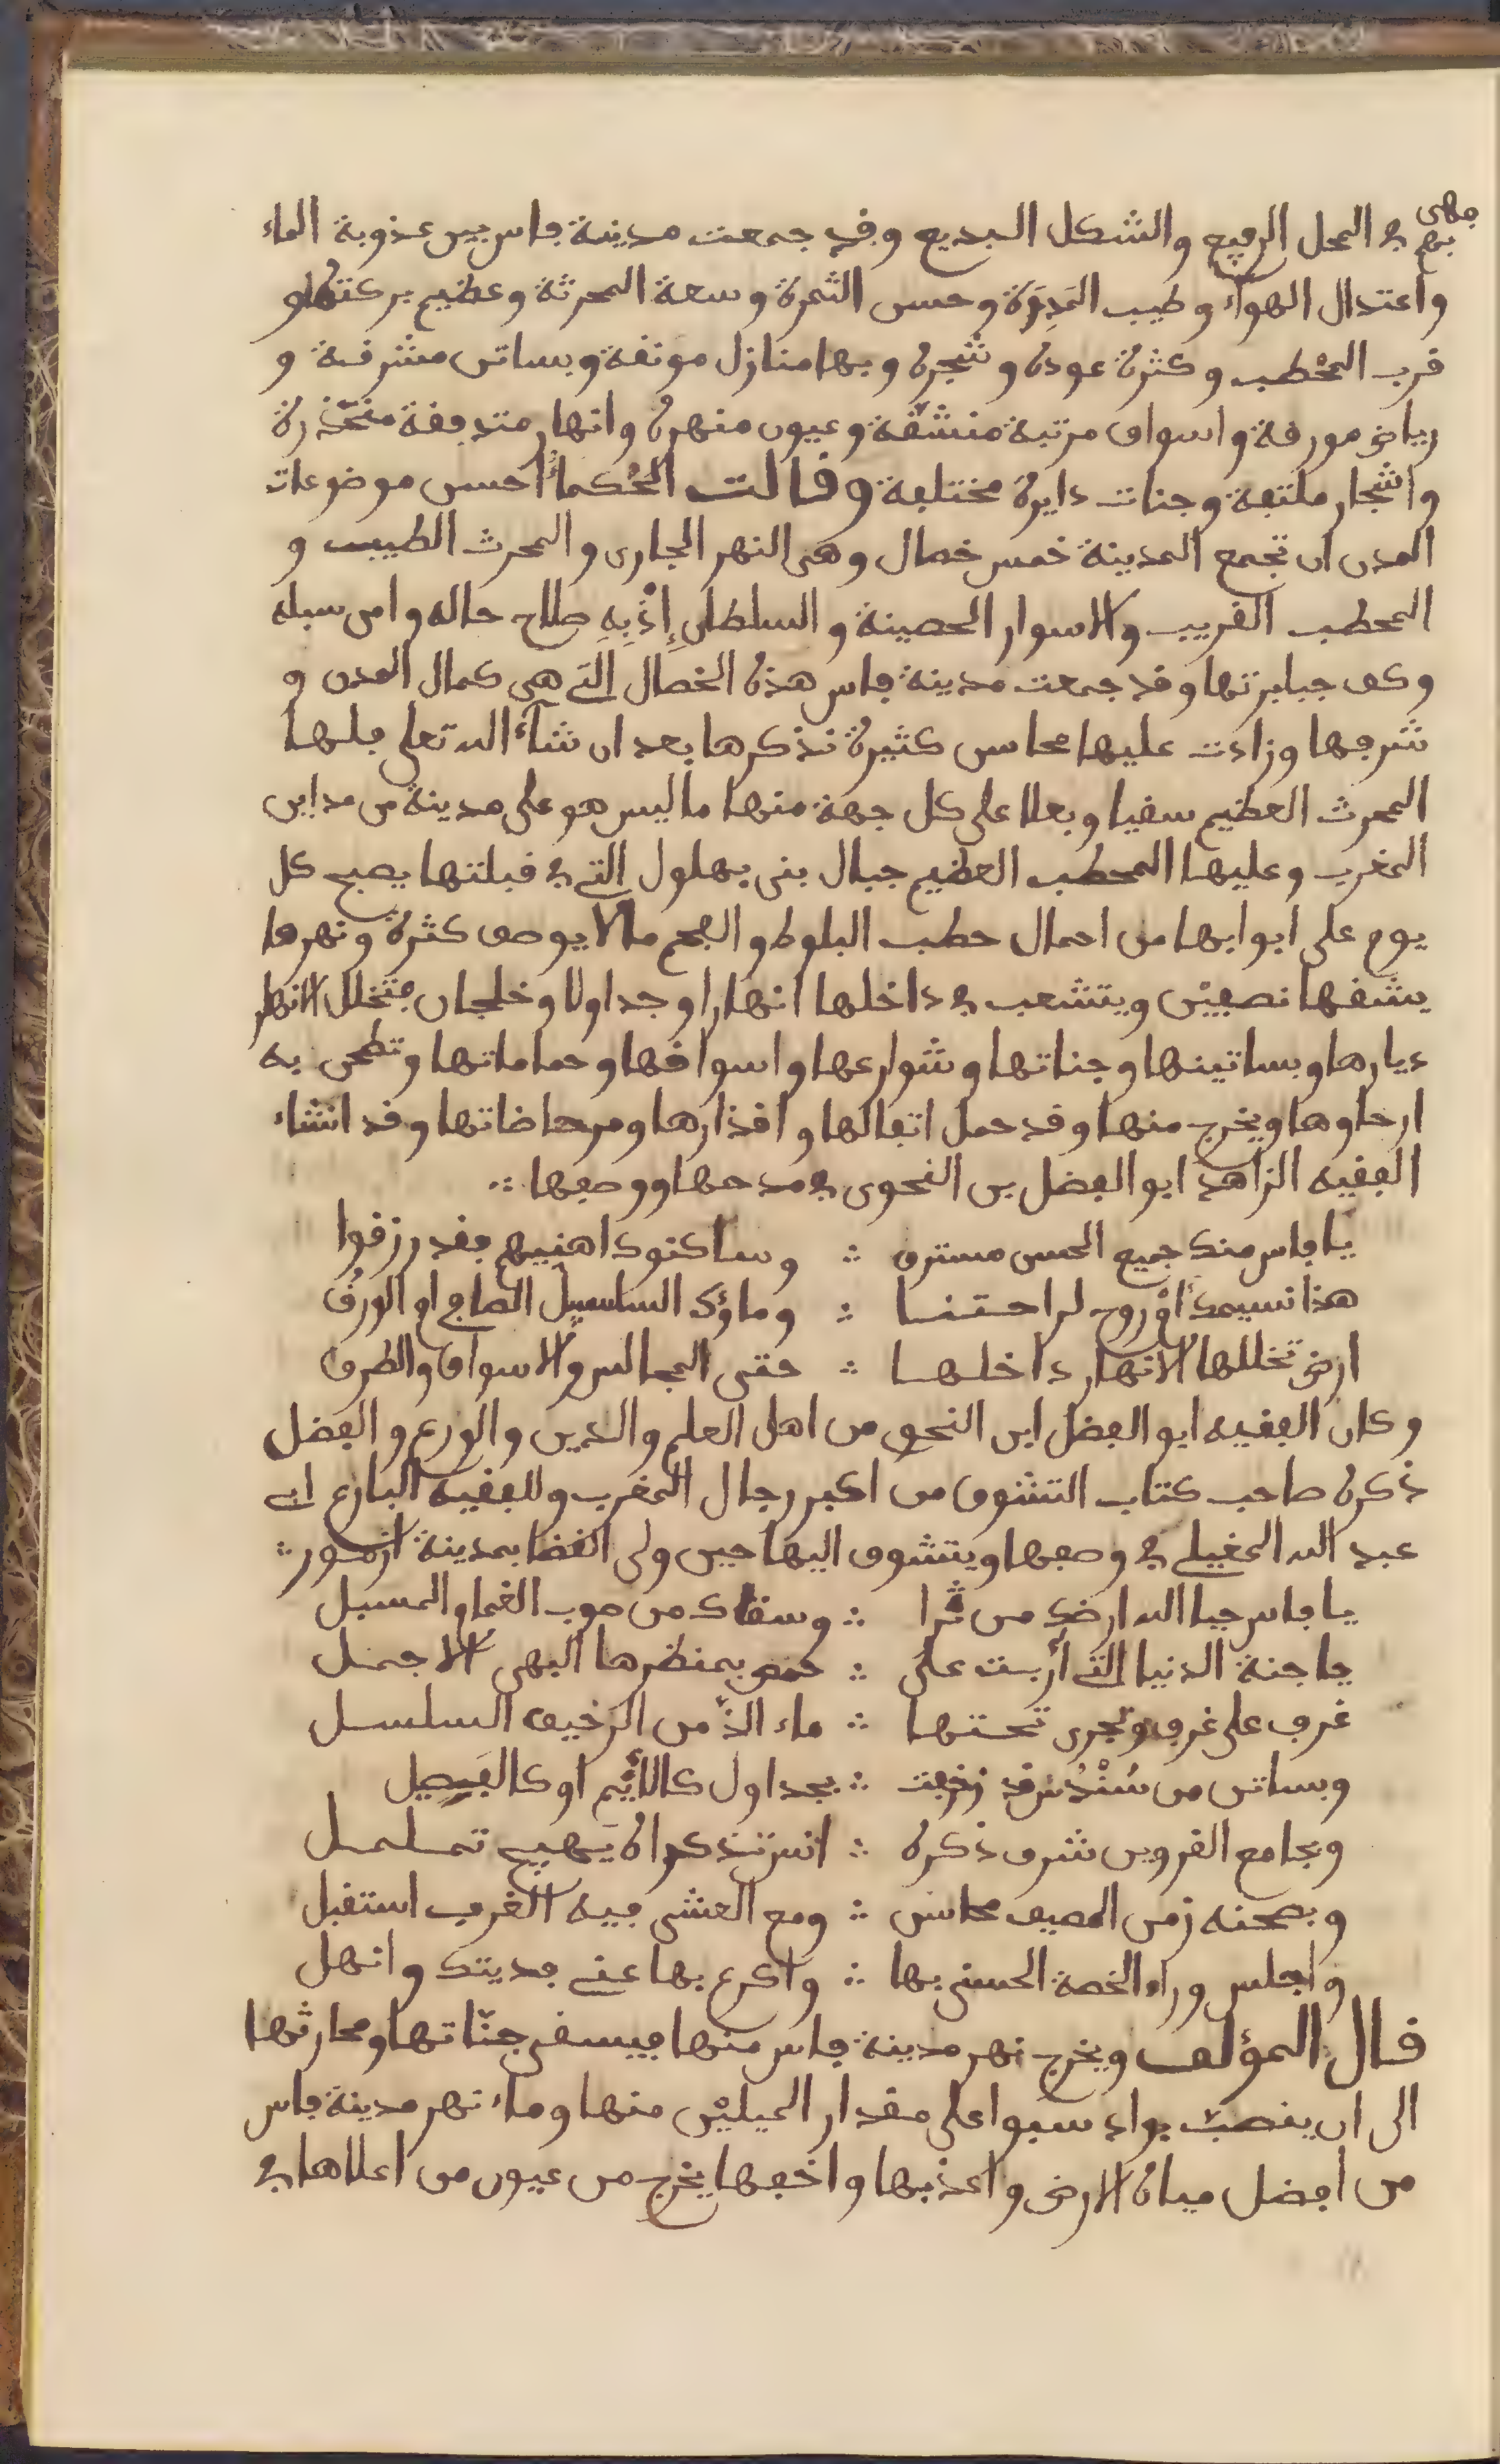 فهى
بهم في المحل الرفيع والشكل البديع وقد جمعت مدينة فاس بين عذوبة الماء
واعتدال الهواء وطيب التربة وحسن الثمرة وسعة المحرثة وعظيم بركتها و
قرب المحطب وكثرة عوده وشجره وبها منازل مونقة وبساتن مشرقة و
رياض مورقة واسواق مرتبة منشقة وعيون منهرة وانهار متدفقة منحدرة
واشجار ملتفة وجنات دايرة مختلفة وقالت الحُكماءُ احسن موضوعات
المدن ان تجمع المدينة خمس خصال وهى النهر الجارى والمحرث الطيب و
المحطب القريب والاسوار الحصينة والسلطان إِذْ بِهِ صلاح حاله وامن سبله
وكف جبابرتها وقد جمعت مدينة فاس هذه الخصال التي هي كمال المدن و
شرفها وزادت عليها محاسن كثيرة نذكرها بعد ان شاء الله تعلى فلها
المحرث العظيم سقيا وبعلا على كل جهة منها ما ليس هو على مدينة من مداين
المغرب وعليها المحطب العظيم جبال بنى بهلول التي في قبلتها يصبح كل
يوم على ابوابها من احمال حطب البلوط والفحم مالا يوصف كثرة ونهرها
يشقها نصفيْن ويتشعب في داخلها انهارا وجداولا وخلجان فتخلل الانهار
ديارها وبساتينها وجناتها وشوارعها واسواقها وحماماتها وتطحن به
ارحاوها ويخرج منها وقد حمل اتفالها واقذارها ومرحاضاتها وقد انشاء
الفقيه الزاهد ابو الفضل بن النحوى في مدحها ووصفها ∴
يا فاس منك جميع الحسن مسترق ∴ وساكنوك اهنيهم فقد رزقوا
هذا نسيمك اوْ روح لراحتنا ∴ وماؤك السلسبيل الصافي او الورقُ
ارض تخللها الانهار داخلها ∴ حتى المجالس والاسواق والطرق
وكان الفقيه ابو الفضل ابن النحوى من اهل العلم والدين والورع والفضل
ذكره صاحب كتاب التشوف من اكبر رجال المغرب وللفقيه البارع ابي
عبد الله المغيلي في وصفها ويتشوق اليها حين ولى القضا بمدينة ازمور ∴
يا فاس حيا الله ارضك من ثرا ∴ وسقاك من صوب الغمام المسبل
يا جنة الدنيا التي أربت على ∴ حمص بمنظرها البهى الاجمل
غرف على غرف وتجرى تحتها ∴ ماء الذّ من الرحيق السلسل
وبساتن من سُنْدُس قد زخرفت ∴ بجداول كالأيْم او كالفيصل
وبجامع القرويين شرف ذكره ∴ انس تذكراه يهيج تململ
وبصحنه زمن المصيف محاسن ∴ ومع العشى فيه الغرب استقبل
واجلس وراء الخصة الحسنى بها ∴ واكرع بها عني فديتك وانهل
قال المؤلف ويخرج نهر مدينة فاس منها فيسقى جنّاتها ومحارثها
الى ان ينصبّ بواد سبوا على مقدار الميليْن منها وماء نهر مدينة فاس
من افضل مياه الارض واعذبها واخفها يخرج من عيون من اعلاها في